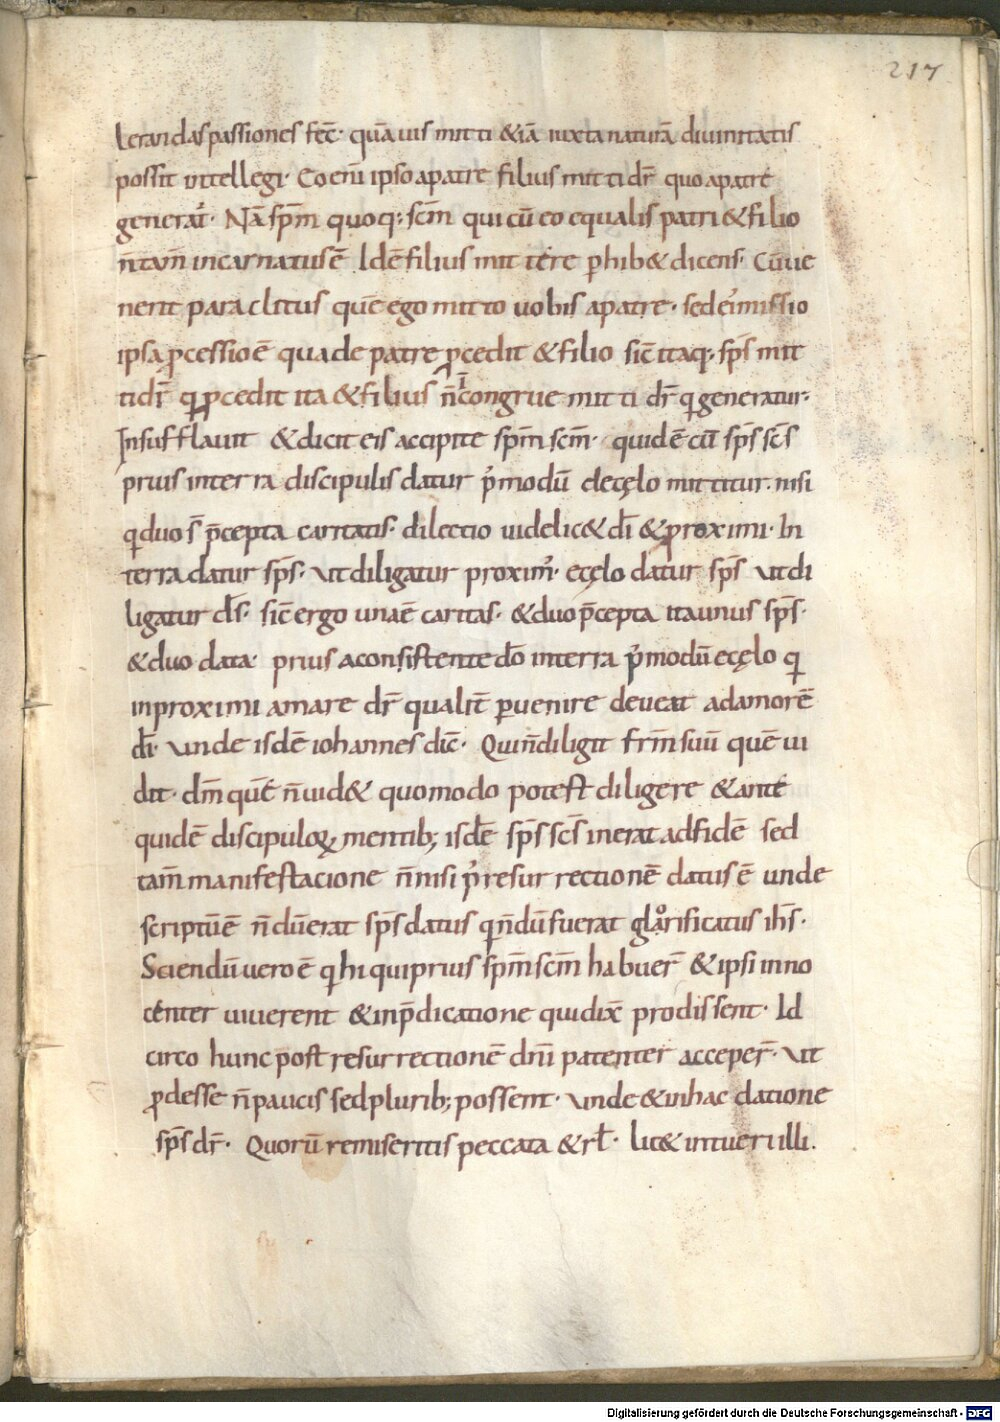 217
lerandas passiones fec̄· quā uis mitti &iā iuxta naturā diuinitatis
possit intellegi· Eo eni̅ ipso a patre filius mitti dr̄ quo a patre
generat᷒· Nā sp̄m quoq; sc̄m qui cū eo equalis patri & filio
n̄ tam̄ incarnatus ē Idē filius mittere phib& dicens· Cū ue
nerit paraclitus quē ego mitto uobis a patre· sed ei᷒ missio
ipsa pcessio ē qua de patre pcedit & filio sic̄ itaq; sp̄s mit
ti dr̄ q pcedit ita & filius n̄ īcongrue mitti dr̄ q generatur·
Insufflauit & dicit eis accipite sp̄m sc̄m· quidē cū sp̄s sc̄s
prius in terra discipulis datur p᷒modū de cęlo mittitur· nisi
q duo s̄ p̄cepta caritatis· dilectio uidelic& dī & proximi· In
terra datur sp̄s· ut diligatur proxim᷒· e cęlo datur sp̄s ut di
ligatur ds̄· sic̄ ergo una ē caritas· & duo p̄cepta ita unus sp̄s·
& duo data· prius a consistente dō in terra p᷒modū e cęlo q
in proximi amare dr̄ qualit̄ puenire deueat ad amorē
dī· unde isdē iohannes dic̄· Qui n̄ diligit fr̄m suū quē ui
dit· dm̄ quē n̄ uid& quomodo potest diligere & ante
quidē discipuloꝝ mentib; isdē sp̄s sc̄s inerat ad fidē sed
tam̄ manifestacione n̄nisi p᷒ resurrectionē datus ē unde
scriptū ē n̄dū erat sp̄s datus q n̄dū fuerat glorificatus ih̄s·
Sciendū uero ē q hi qui prius sp̄m sc̄m habuer̄ & ipsi inno
center uiuerent & in p̄dicatione quidix̄ prodissent· Id
circo hunc post resurrectionē dn̄i patenter acceper̄· ut
pdesse n̄ paucis sed plurib; possent· unde & in hac datione
sp̄s dr̄· Quorū remiseritis peccata & rl̄· lic& intueri illi.
Digitalisierung gefördert durch die Deutsche Forschungsgemeinschaft - DFG